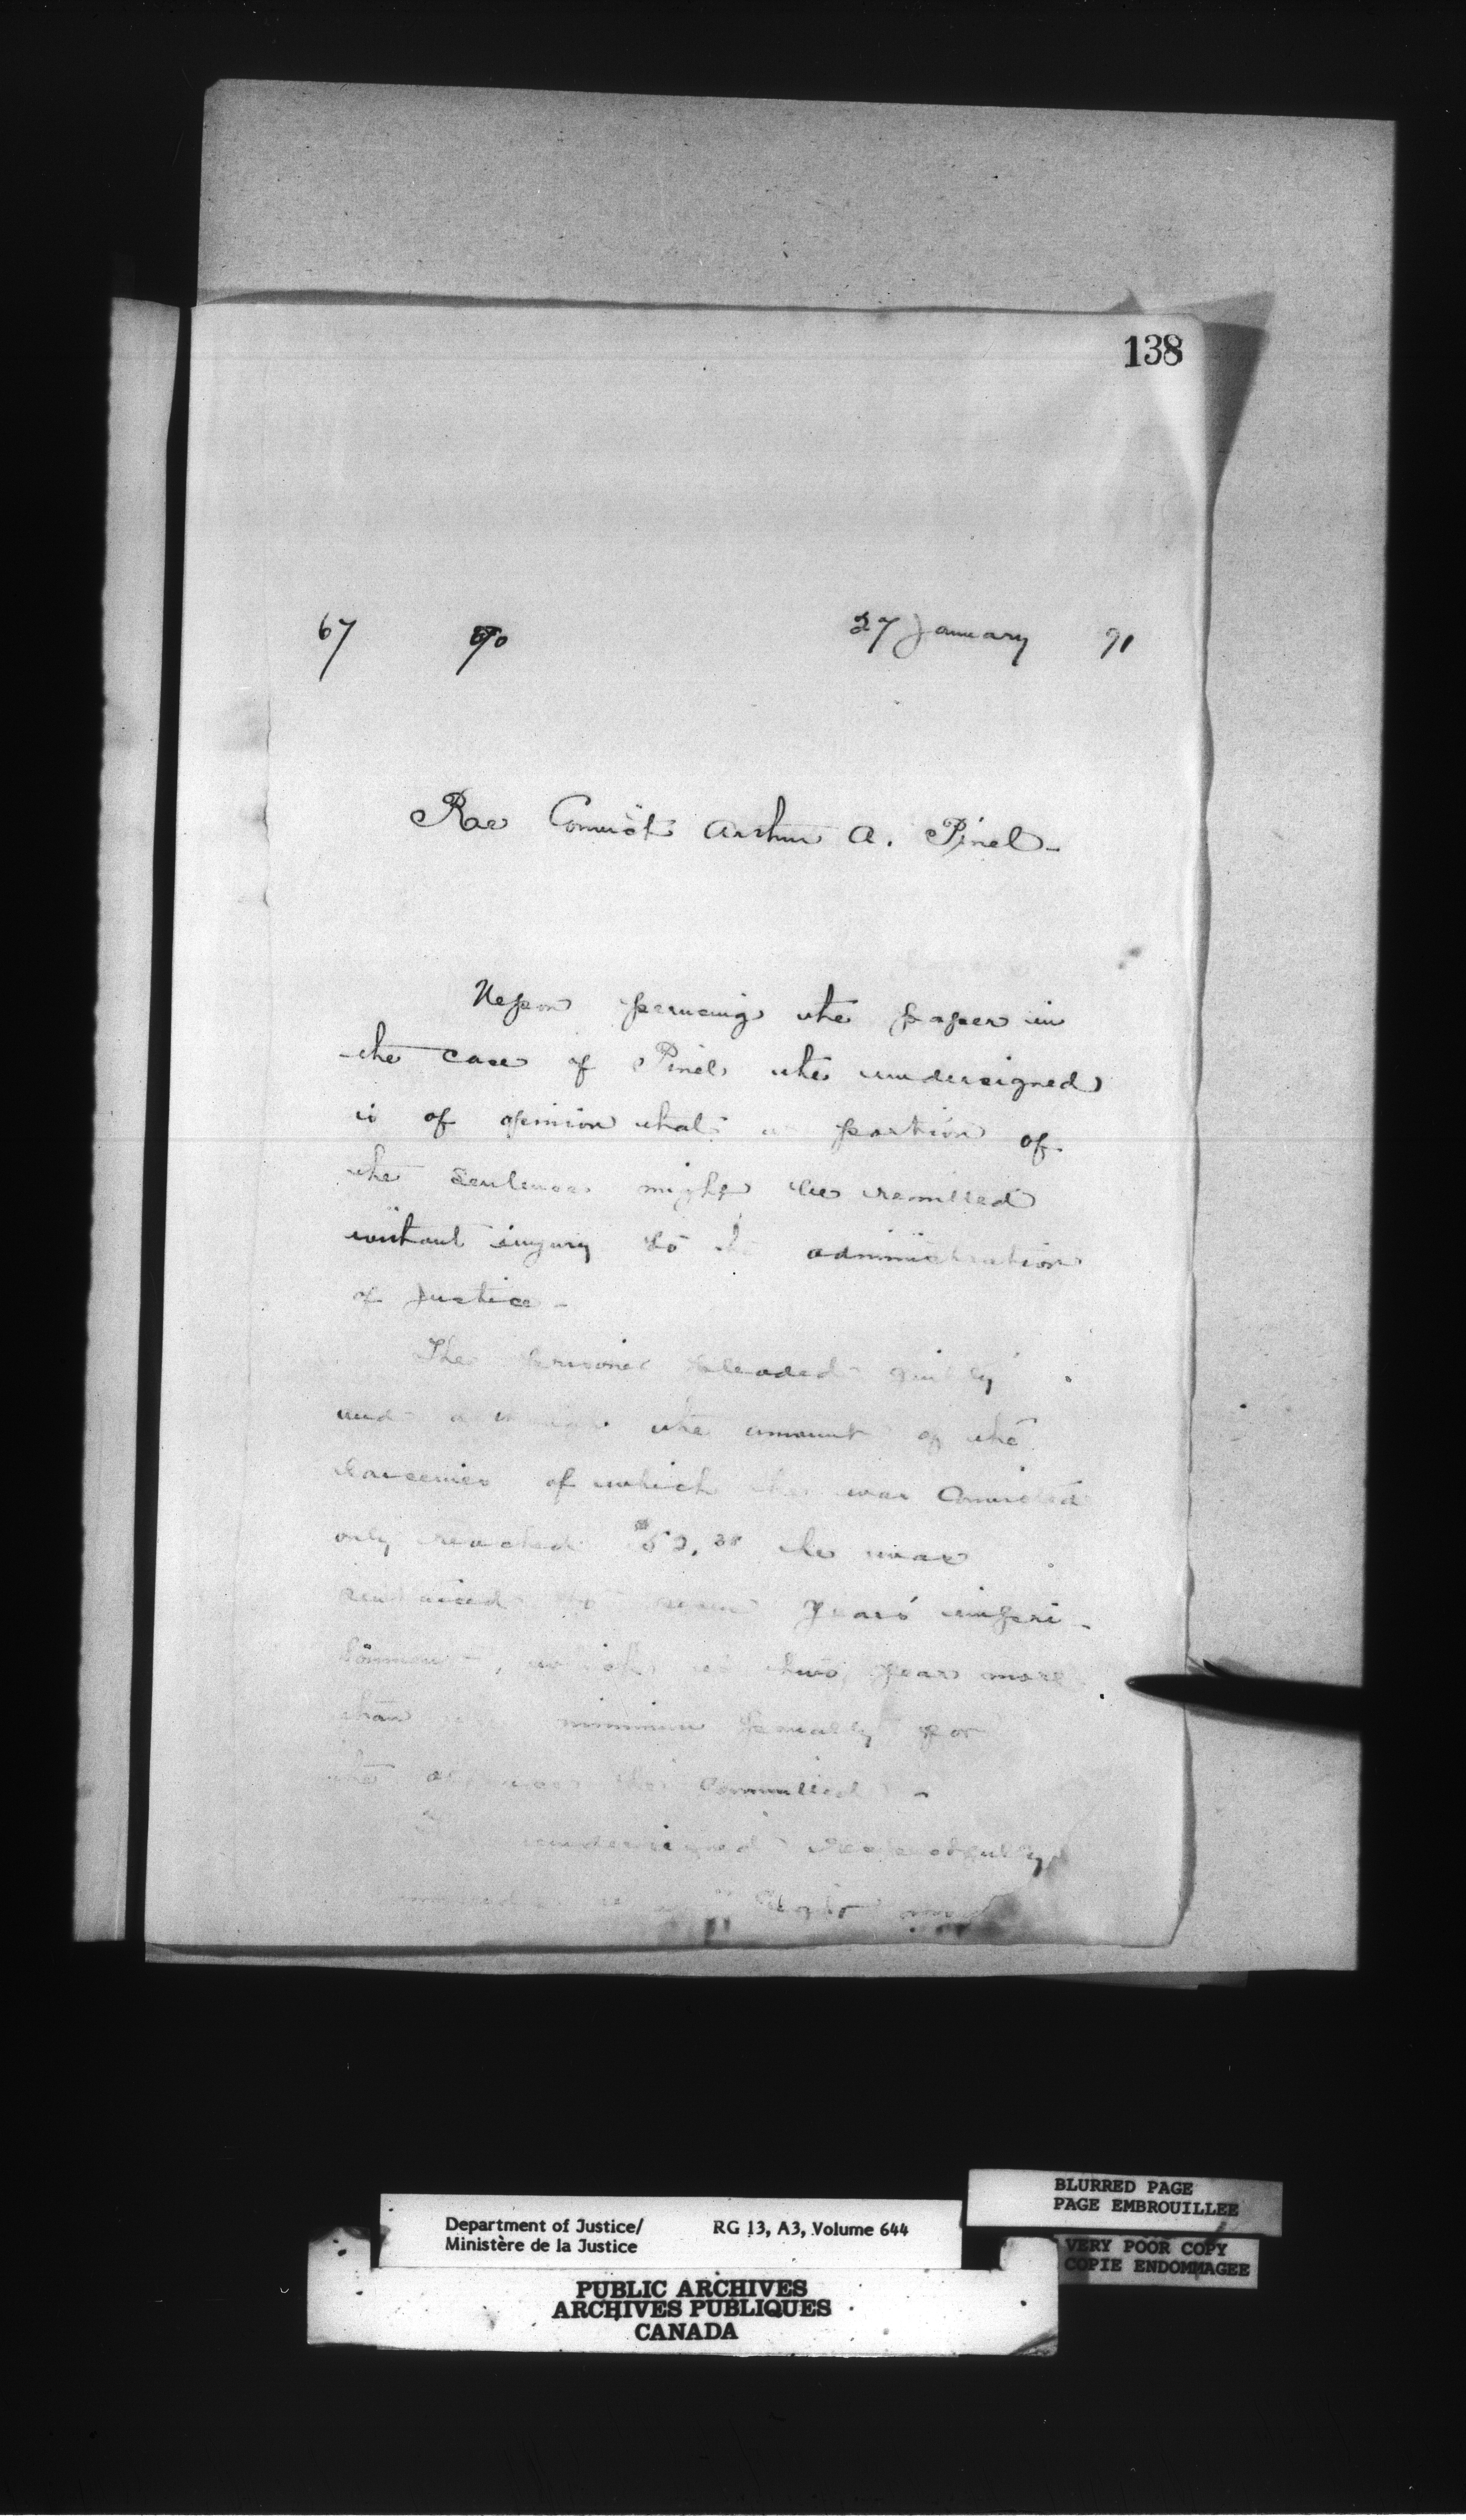 138
67 90 27 January 91
Rae Convict Arthur A. Pinel -
Upon perusing the paper in
the case of Pinel the undersigned
is of opinion that a portion of
the sentence might be remitted
without injury to the administration
of justice -
The prisoner pleaded guilty
and the amount of the
larcenies of which he was convicted
only reached he was
sentenced to seven years' impri-
sonment, which is two years more
than minimum penalty for
the offence he committed -
undersigned respectfully
Department of Justice/ RG 13, A3, Volume 644
Ministère de la Justice
PUBLIC ARCHIVES
ARCHIVES PUBLIQUES
CANADA
BLURRED PAGE
PAGE EMBROUILLEE
VERY POOR COPY
COPIE ENDOMMAGEE